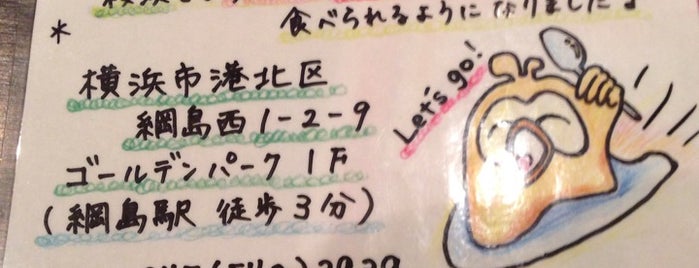 食べられるようになりました♪
*
横浜市港北区
綱島西1-2-9
ゴールデンパーク1F
(綱島駅 徒歩3分)
Let's go!